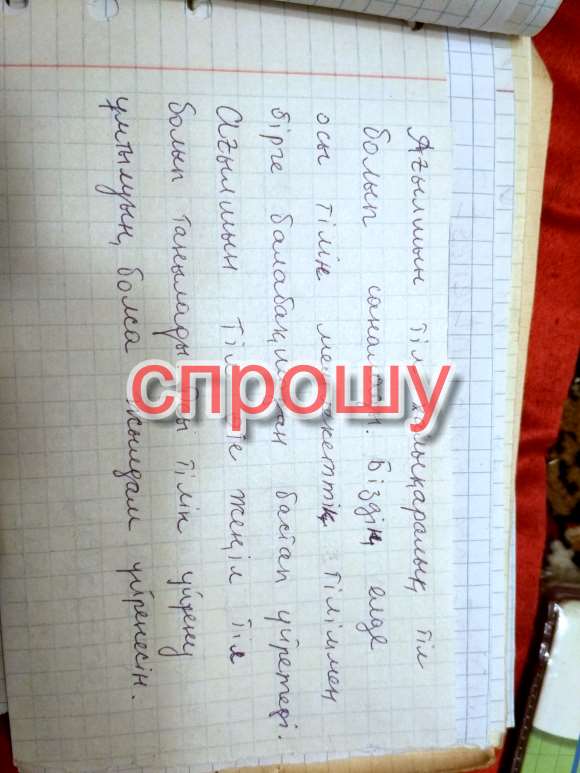 Ағылшын тіл халықаралық тіл
болып Біздің елде
осы тілін мемлекеттік тілімен
бірге балабақшадан бастап үйретеді.
Ағылшын тіл жеңіл тіл
болып танылады тілін үйрену
ұмтылуың болса жылдам үйренесін.
спрошу